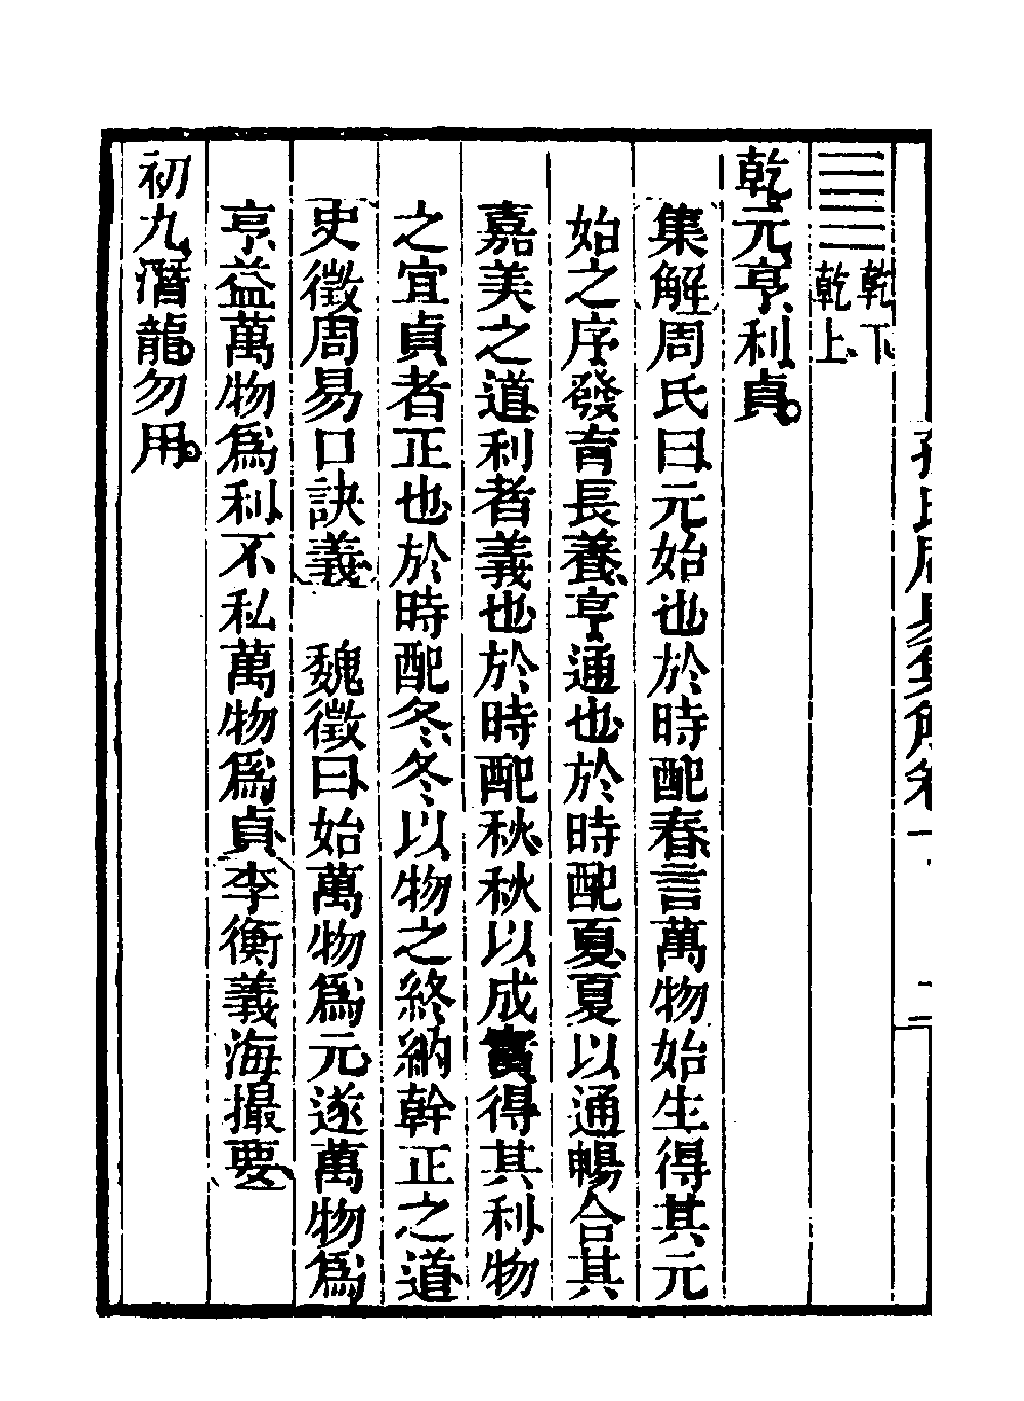 孫氏周易集解卷一 二
䷀ 乾下
乾上
乾、元、亨、利貞。
集解周氏曰、元始也於時配春、言萬物始生得其元
始之序、發育長養、亨通也於時配夏、夏以通暢合其
嘉美之道、利者義也於時配秋、秋以成實得其利物
之宜貞者正也於時配冬、冬以物之終納幹正之道、
史徵周易口訣義 魏徵曰、始萬物爲元、遂萬物爲
亨、益萬物爲利、不私萬物爲貞、李衡義海撮要
初九、潛龍勿用。